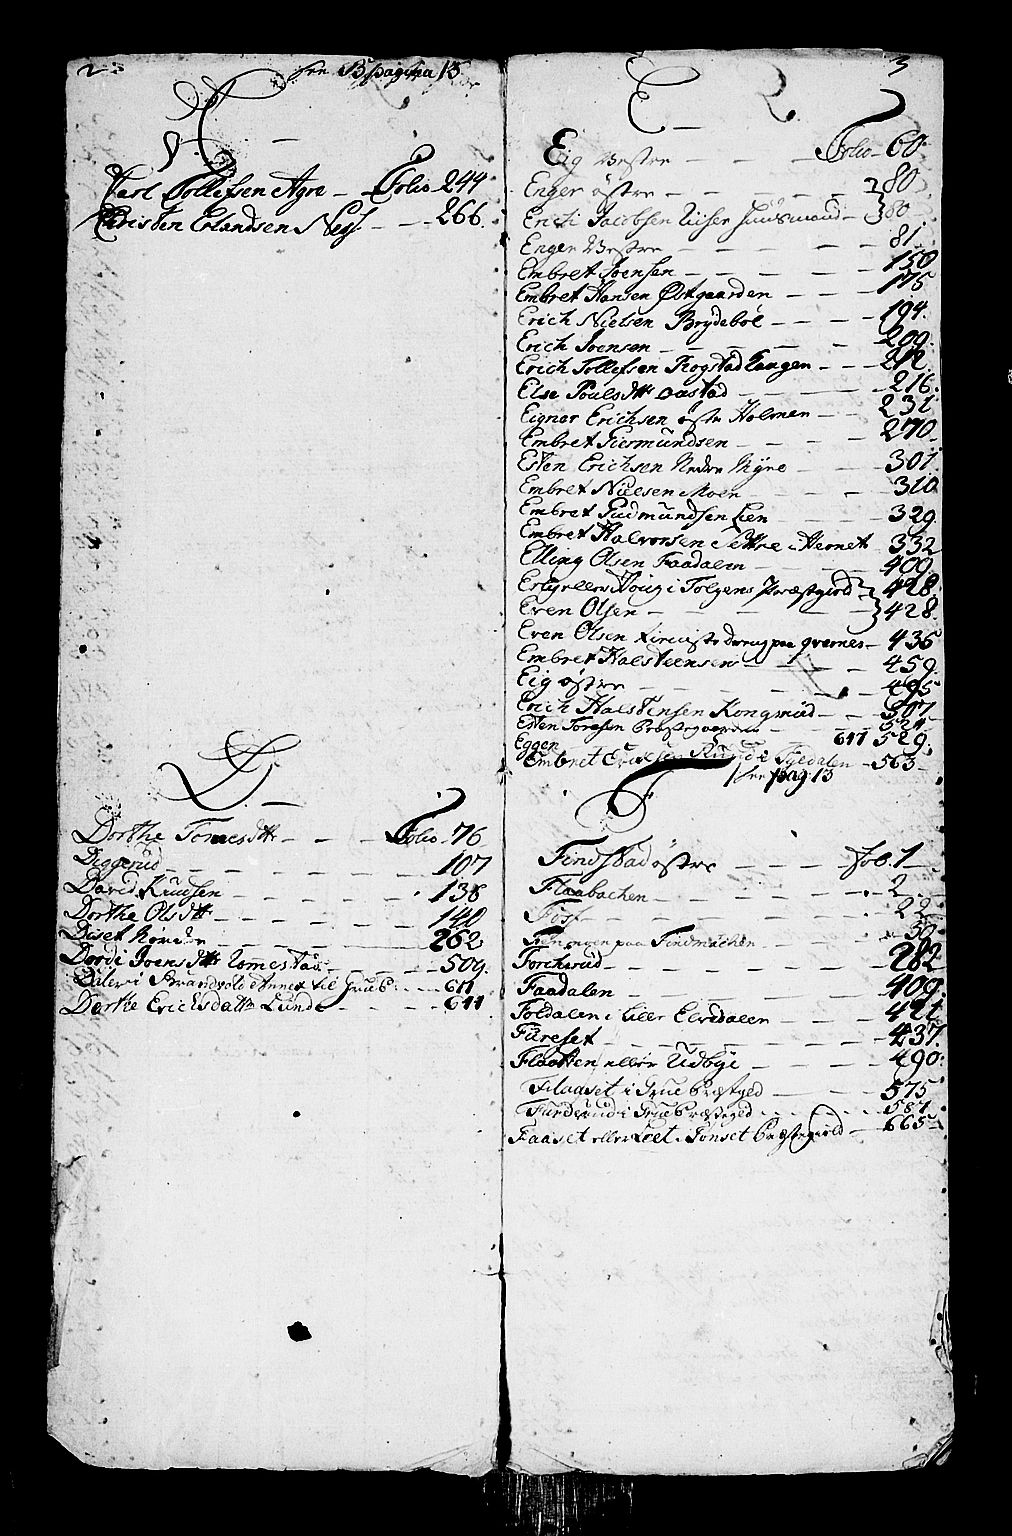 2
see B pagina 13
C
Karl Tollefsen Agre — Folio 244
Christen Erlandsen Ness — 266
D
Dorthe Tomesdtt — Folio 76
Diggerud — 107
David Knudsen — 138
Dorthe Olsdtt — 140
Diset Nordre — 262
Dordi Joensdtt Tommestad — 509
Daler i Strandvold Annex til Grue — 611
Dorthe Erichsdattr Lunde — 611
3
E
Eig Vestre — Folio 60
Enger østre — 80
Erich Jacobsen Huusmand — 80
Enger Vestre — 81
Embret Joensen — 150
Embret Hansen Østgaarden — 175
Erich Nielsen Brydeboe — 194
Erich Joensen — 209
Erich Tollefsen Rogstad Eangen — 212
Else Poulsdtt Aastad — 216
Eigner Erichsen østr Holmen — 231
Embret Giermundsen — 270
Esten Erichsen Nedre Myre — 301
Embret Nielsen Moen — 310
Embret Gudmundsen Lien — 329
Embret Halvorsen Settre i Hernet — 332
Elling Olsen Faadalen — 409
i Tolgens Præstegield — 428
Even Olsen — 428
Even Olsen paa qvernes — 436
Embret Halsteensen — 459
Eig østre — 495
Erich Halstensen Kongsrud — 507
Esten Toresen Præstegaarden — 524
Eggen — 617 529
Embret Erichsen Ruud i Tyldalen — 563
see pag 13
F
Findstad østre — Fol. 1
Flaabachen — 2
Foss — 22
paa Findmachen — 50
Forcherud — 282
Faadalen — 409
Foldalen i Lille Elvedalen — 421
Fureset — 437
Flaatten eller Udbye — 490
Flaaset i Grue Præstegd — 575
Furderud i Grue Præstegd — 587
Faaset eller Loet i Tonset Præstegield — 665